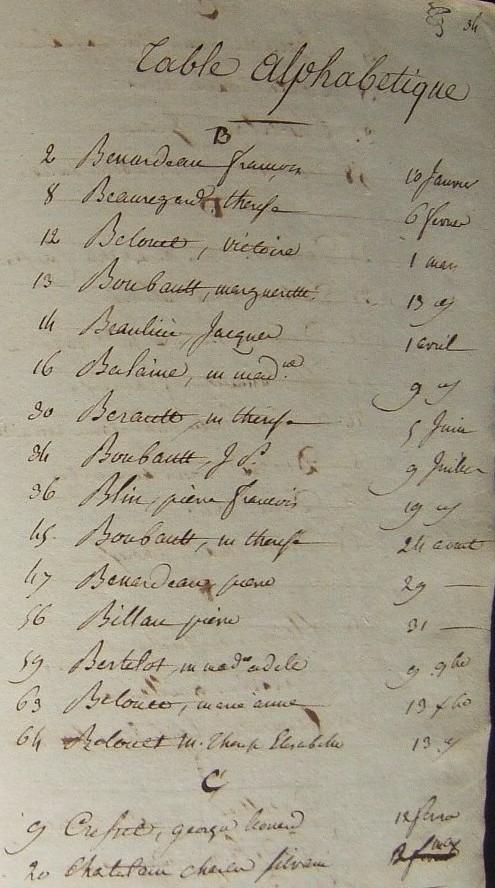 34
Table alphabetique
B
2 Benardeau françois 10 Janvier
8 Beauregard, therese 6 fevrier
12 Belouet, victoire 1 mars
13 Boubault, margueritte 13 dº
14 Beaulieu, Jacques 1 avril
16 Balaine, m mad.ne 9 dº
30 Berault, m therese 5 Juin
34 Boubault, J. P. 9 Juillet
36 Blin, pierre françois 19 dº
45 Boubault, m therese 24 aout
47 Benardeau, pierre 29 —
56 Billau pierre 31 —
59 Bertelot, m mad.ne adele 9 9bre
63 Belouet, marie anne 13 xbre
64 Belouet M. Therese Elisabethe 13 dº
C
9 george 12
20 Chatelain charles silvain 2 mars